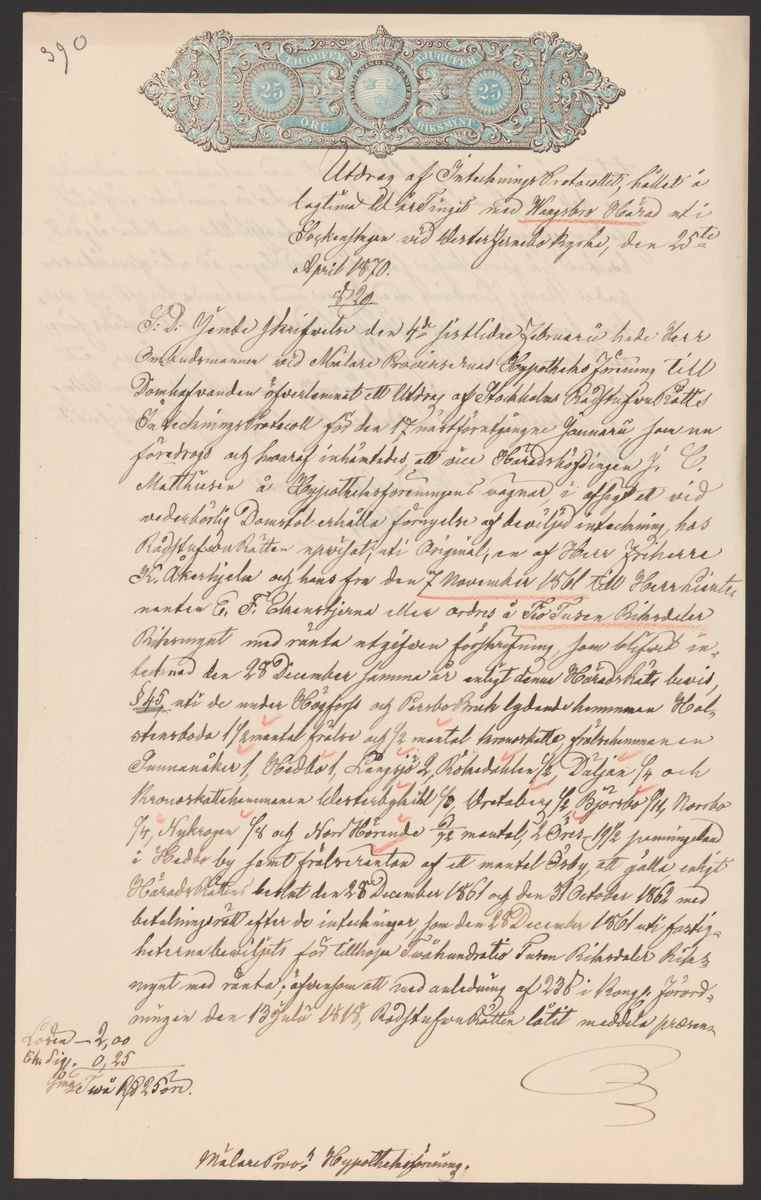 390
TJUGUFEM TJUGUFEM
25 25
ÖRE RIKSMYNT
Utdrag af Intecknings Protocollet, hållet å
lagtima Tinget med Wagnsbro Härad uti
Sockenstugan vid Westerfernebo Kyrka, den 25te
April 1870.
§ 20
S: D: Jemte skrifwelse den 4de sistlidne Februarii hade Herr
Ombudsmannen vid Mälare Provinsernas Hypotheks Förening till
Domhafvanden öfverlemnat ett Utdrag af Stockholms Rådstufvu Rätts
Intecknings Protocoll för den 17 nästförutgångne Januarii som nu
föredrogs och hvaraf inhämtades, att vice Häradshöfdingen J. C.
Matthiesen å Hypotheksföreningens vägnar, i afsigt att vid
vederbörlig Domstol erhålla förnyelse af beviljad inteckning, hos
Rådstufvu Rätten uppvisat, uti Original, en af Herr Friherre
K. Åkerhjelm och hans fru den 7 November 1861 till Herr Lieute-
nanten E. F. Ehrenstjerna eller ordres å Tio Tusen Riksdaler
Riksmynt med ränta utgifven förskrifning, som blifvit in-
tecknad den 28 December samma år enligt denna Härads Rätts bevis,
§ 45, uti de under Högfors och Persbo Bruk lydande hemman Hol-
stensboda 1 1/2 mantal frälse och 1/2 mantal kronoskatte, frälsehemmanen
Sunnanåker 1, Hedbo 1, Långsjö 2, Röhsdahlen 1/2, Däljan 1/4 och
Kronoskattehemmanen Westerbykihl 1/8, Uretaberg 1/2, Björsbo 1/4, Norrbo
1/4, Nykrogen 1/8 och Norr Hörende mantal, 2 Öres 19 1/2 penningeland
i Hedbo by samt frälseräntan af ett mantal Ösby, att gälla enligt
Härads Rättens beslut den 28 December 1861 och den 31 October 1862 med
betalningsrätt efter de inteckningar, som den 28 December 1861 uti fastig-
heterna beviljats för tillhopa Tvåhundratio Tusen Riksdaler Riks-
mynt med ränta; äfvensom att med anledning af 23 § i Kongl. Förord-
ningen den 13 Julii 1818, Rådstufvu Rätten låtit meddela præsen-
Lösen — 2,00
0,25
Två Rd 25 öre.
Mälare Prov:s Hypotheksförening.